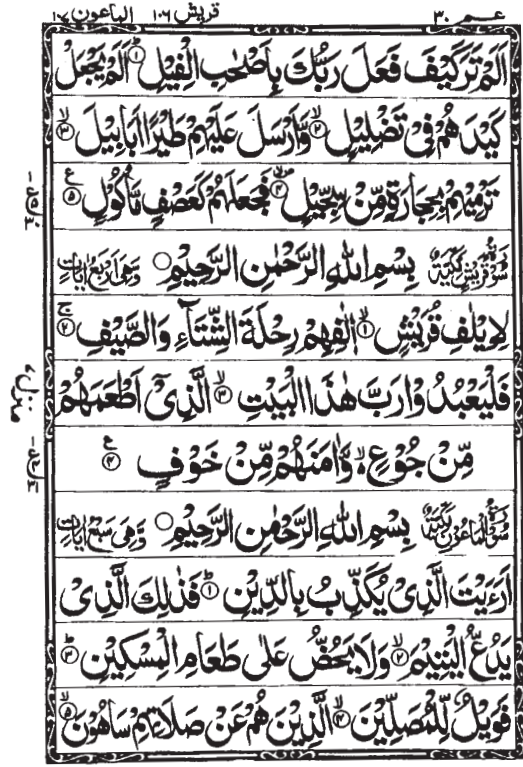 عم ٣٠ قريش ١٠٦ الماعون ١٠٧
اَلَمْ تَرَ كَيْفَ فَعَلَ رَبُّكَ بِاَصْحٰبِ الْفِيْلِ ۝١ اَلَمْ يَجْعَلْ
كَيْدَهُمْ فِيْ تَضْلِيْلٍ ۝٢ وَّاَرْسَلَ عَلَيْهِمْ طَيْرًا اَبَابِيْلَ ۝٣
تَرْمِيْهِمْ بِحِجَارَةٍ مِّنْ سِجِّيْلٍ ۝٤ فَجَعَلَهُمْ كَعَصْفٍ مَّاْكُوْلٍ ۝٥
سُوْرَةُ قُرَيْشٍ مَكِّيَّةٌ بِسْمِ اللّٰهِ الرَّحْمٰنِ الرَّحِيْمِ ۝ وَهِيَ اَرْبَعُ اٰيَاتٍ
لِاِيْلٰفِ قُرَيْشٍ ۝١ اٖلٰفِهِمْ رِحْلَةَ الشِّتَآءِ وَالصَّيْفِ ۝٢
فَلْيَعْبُدُوْا رَبَّ هٰذَا الْبَيْتِ ۝٣ الَّذِيْٓ اَطْعَمَهُمْ
مِّنْ جُوْعٍ ۙ وَّاٰمَنَهُمْ مِّنْ خَوْفٍ ۝٤
سُوْرَةُ الْمَاعُوْنِ مَكِّيَّةٌ بِسْمِ اللّٰهِ الرَّحْمٰنِ الرَّحِيْمِ ۝ وَهِيَ سَبْعُ اٰيَاتٍ
اَرَءَيْتَ الَّذِيْ يُكَذِّبُ بِالدِّيْنِ ۝١ فَذٰلِكَ الَّذِيْ
يَدُعُّ الْيَتِيْمَ ۝٢ وَلَا يَحُضُّ عَلٰى طَعَامِ الْمِسْكِيْنِ ۝٣
فَوَيْلٌ لِّلْمُصَلِّيْنَ ۝٤ الَّذِيْنَ هُمْ عَنْ صَلَاتِهِمْ سَاهُوْنَ ۝٥
منزل ٧